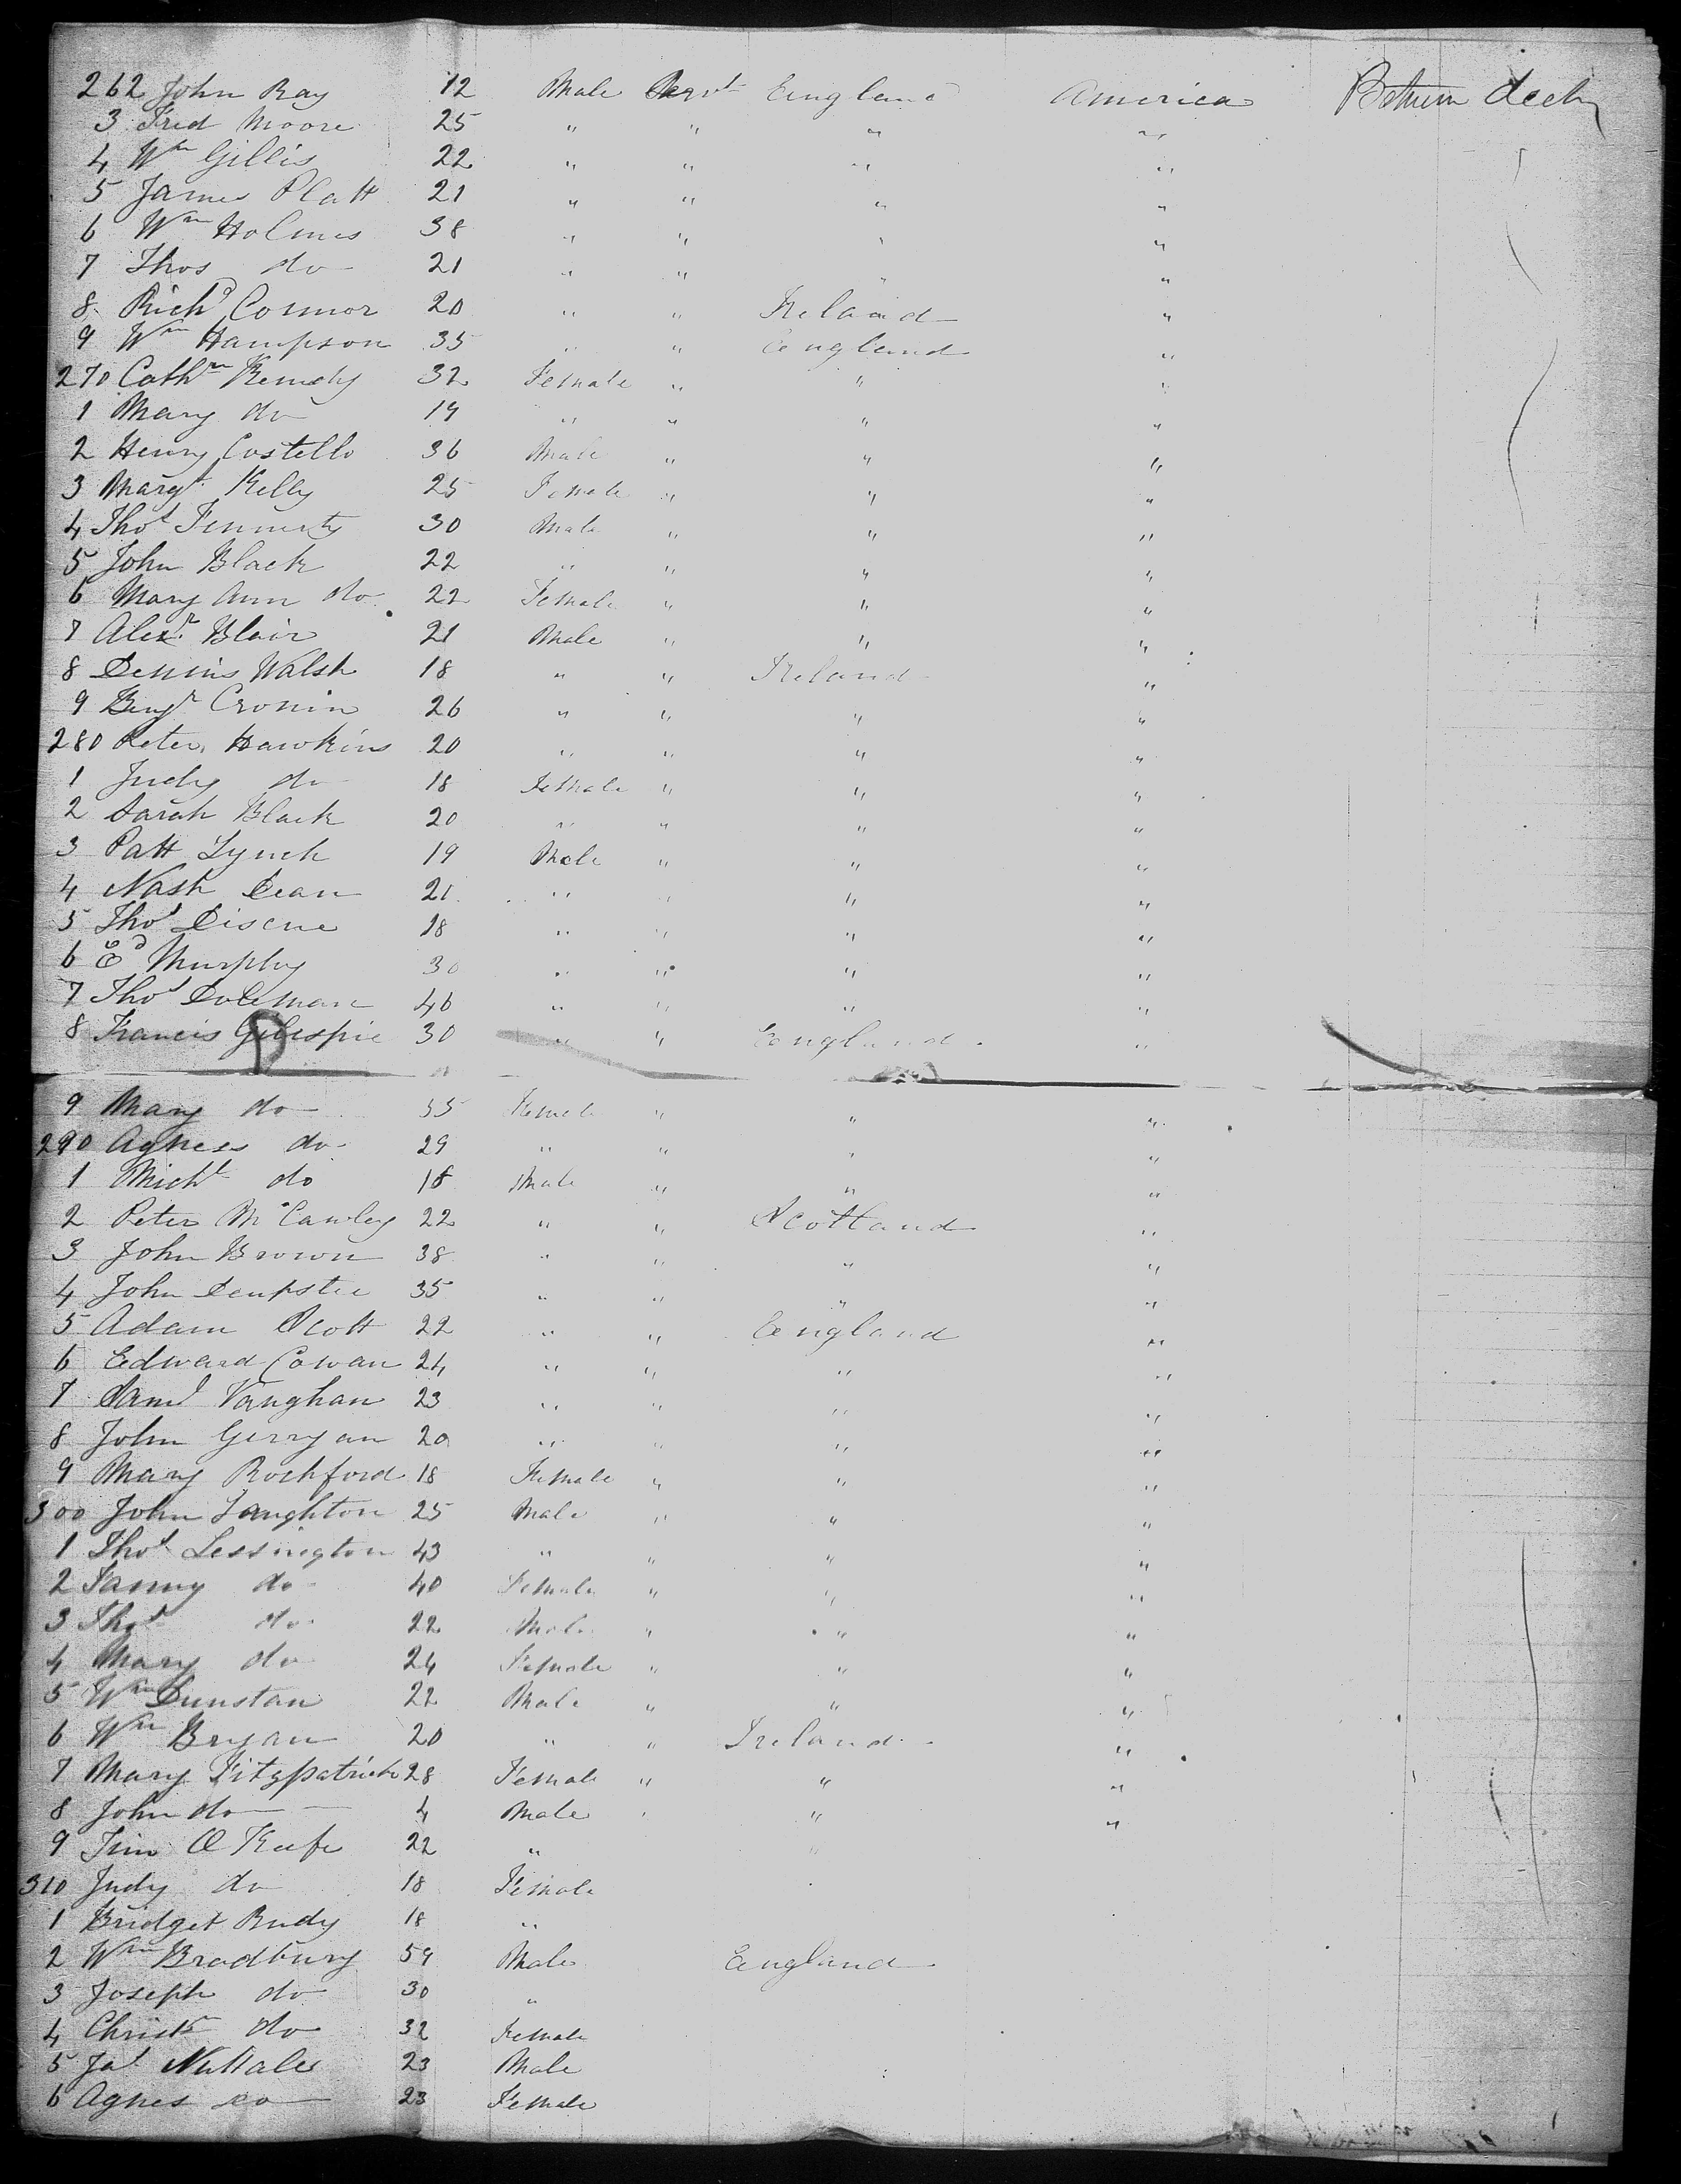 262 John Ray 12 Male Servt England America Between decks
3 Fred Moore 25 " " " "
4 Wm Gillis 22 " " " "
5 James Platt 21 " " " "
6 Wm Holmes 38 " " " "
7 Thos do 21 " " " "
8 Richd Connor 20 " " Ireland "
9 Wm Hampson 35 " " England "
270 Cathn 32 Female " " "
1 Mary do 19 " " " "
2 Henry Costello 36 Male " " "
3 Margt Kelly 25 Female " " "
4 Thos 30 Male " " "
5 John Black 22 " " " "
6 Mary Ann do 22 Female " " "
7 Alexr Blair 21 Male " " "
8 Dennis Walsh 18 " " Ireland "
9 Cronin 26 " " " "
280 Peter Hawkins 20 " " " "
1 Judy do 18 Female " " "
2 Sarah Black 20 " " " "
3 Patt Lynch 19 Male " " "
4 Nash Dean 21 " " " "
5 Thos 18 " " " "
6 Ed Murphy 30 " " " "
7 Thos Coleman 46 " " " "
8 Francis Gilespie 30 " " England "
9 Mary do 35 Female " " "
290 Agness do 29 " " " "
1 Michl do 18 Male " " "
2 Peter McCawley 22 " " Scotland "
3 John Brown 38 " " " "
4 John Dempster 35 " " " "
5 Adam Scott 22 " " England "
6 Edward Cowan 24 " " " "
7 Saml Vaughan 23 " " " "
8 John Gerryan 20 " " " "
9 Mary Rochford 18 Female " " "
300 John Laughton 25 Male " " "
1 Thos Lessington 43 " " " "
2 Fanny do 40 Female " " "
3 Thos do 22 Male " " "
4 Mary do 24 Female " " "
5 Wm Dunstan 22 Male " " "
6 Wm Bryan 20 " " Ireland "
7 Mary Fitzpatrick 28 Female " " "
8 John do 4 Male " " "
9 Tim O Keefe 22 " "
310 Judy do 18 Female
1 Bridget Rudy 18 "
2 Wm Bradbury 59 Male England
3 Joseph do 30 "
4 Christn do 32 Female
5 Jas Nuttales 23 Male
6 Agnes do 23 Female